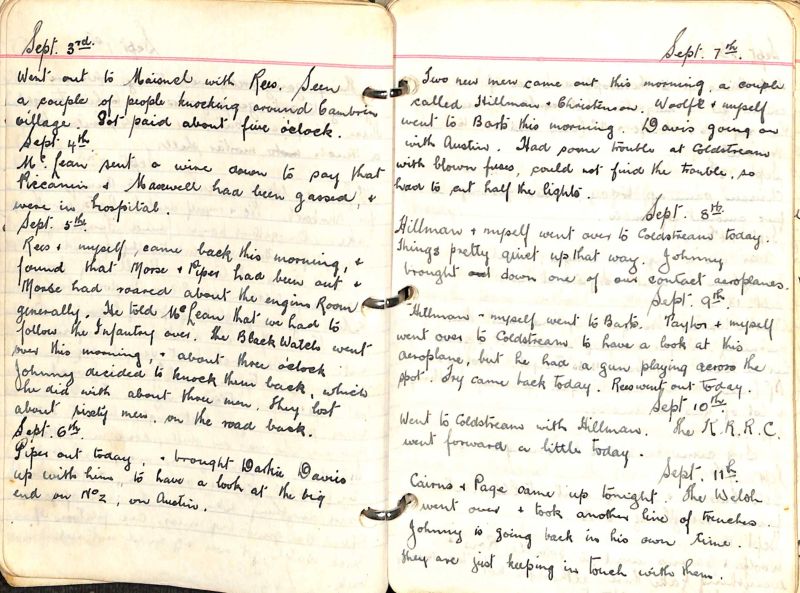 Sept. 3rd.
Went out to Maisnel with Rees. Seen
a couple of people knocking around Cambrin
village. Got paid about five o'clock.
Sept. 4th
Mc Lean sent a wire down to say that
Piccanin & Maxwell had been gassed, &
were in hospital.
Sept. 5th.
Rees & myself came back this morning, &
found that Morse & Piper had been out &
Morse had roared about the engine Room
generally. He told Mc Lean that we had to
follow the Infantry over. The Black Watch went
over this morning, & about three o'clock
Johnny decided to knock them back, which
he did with about three men. They lost
about sixty men, on the road back.
Sept. 6th.
Piper out today, & brought Darkie Davis
up with him, to have a look at the big
end on No 2, on Austin.
Sept. 7th.
Two new men came out this morning, a couple
called Hillman & Christenson. Woolfe & myself
went to Barts this morning. Davis going on
with Austin. Had some trouble at Coldstream
with blown fuses, could not find the trouble, so
had to cut half the lights.
Sept. 8th.
Hillman & myself went over to Coldstream today.
Things pretty quiet up that way. Johnny
brought down one of our contact aeroplanes.
Sept. 9th.
Hillman & myself went to Barts. Taylor & myself
went over to Coldstream to have a look at this
aeroplane, but he had a gun playing across the
spot. Fry came back today. Rees went out today.
Sept. 10th.
Went to Coldstream with Hillman. The K.R.R.C.
went forward a little today.
Sept. 11th
Cairns & Page came up tonight. The Welsh
went over & took another line of trenches.
Johnny is going back in his own time.
They are just keeping in touch with them.